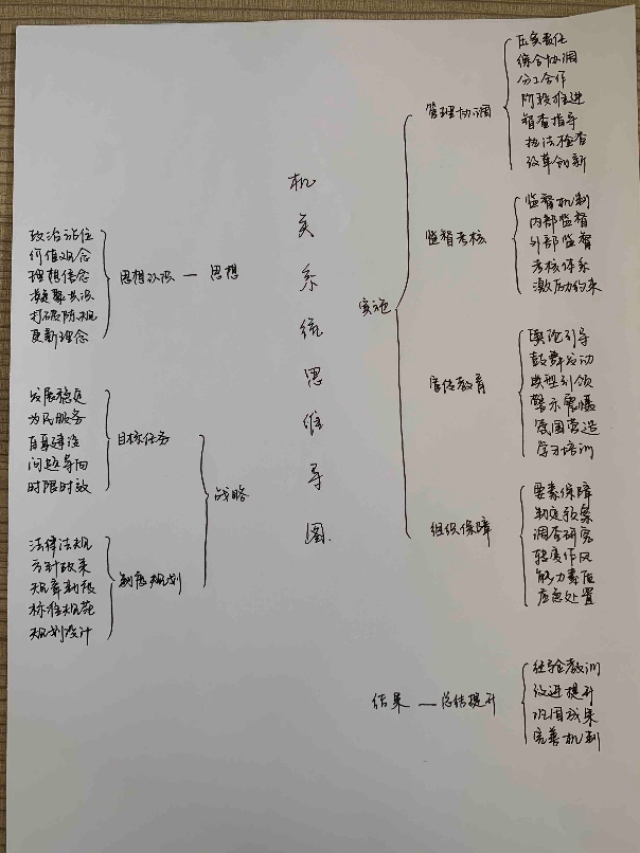 机关系统思维导图
思想
思想认识
政治站位
价值观念
理想信念
凝聚共识
打破陈规
更新理念
战略
目标任务
发展稳定
为民服务
自身建设
问题导向
时限时效
制度规划
法律法规
方针政策
规章制度
标准规范
规划设计
实施
管理协调
压实责任
综合协调
分工合作
阶段推进
督查指导
执法检查
改革创新
监督考核
监督机制
内部监督
外部监督
考核体系
激励约束
宣传教育
舆论引导
鼓舞发动
典型引领
警示震慑
氛围营造
学习培训
组织保障
要素保障
制定预案
调查研究
态度作风
能力素质
应急处置
结果
总结提升
经验教训
改进提升
巩固成果
完善机制